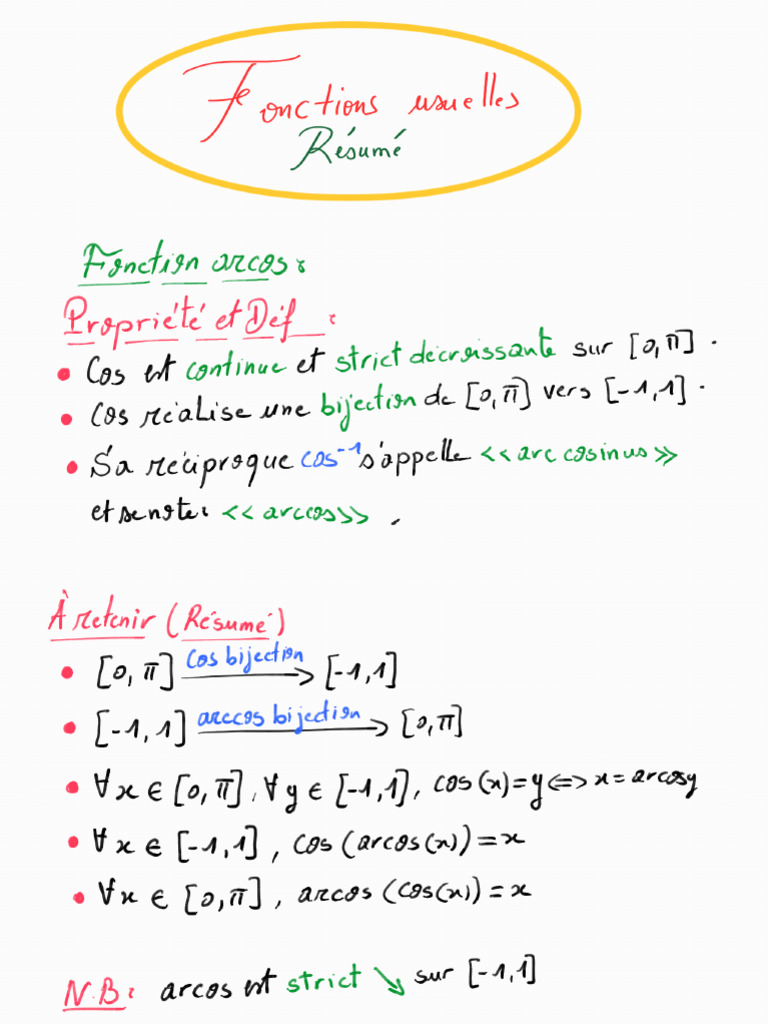 Fonctions usuelles
Résumé
Fonction arcos :
Propriété et Déf :
• Cos est continue et strict décroissante sur [0, π] .
• Cos réalise une bijection de [0, π] vers [-1, 1] .
• S'a réciproque cos⁻¹ s'appelle <<arc cosinus>>
et se note : <<arccos>> .
À retenir (Résumé)
• [0, π] cos bijection → [-1, 1]
• [-1, 1] arccos bijection → [0, π]
• ∀x ∈ [0, π], ∀y ∈ [-1, 1], cos(x) = y ⇔ x = arcosy
• ∀x ∈ [-1, 1], cos(arcos(x)) = x
• ∀x ∈ [0, π], arcos(cos(x)) = x
N.B : arcos est strict ↘ sur [-1, 1]